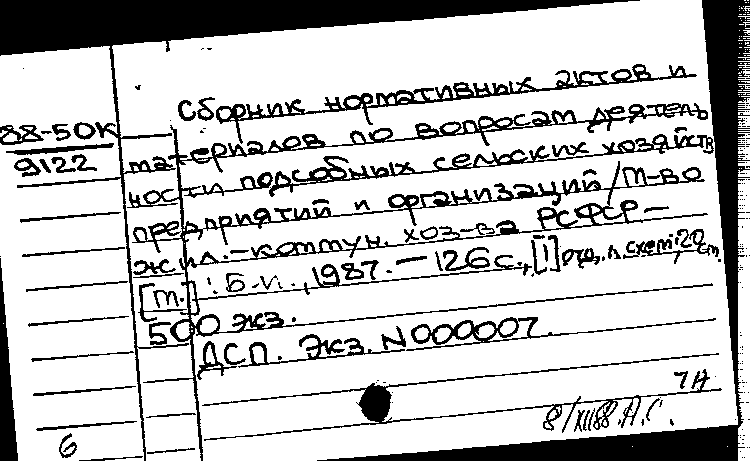 88-50К
9122
Сборник нормативных актов и
материалов по вопросам деятель
ности подсобных сельских хозяйств
предприятий и организаций/М-во
жил.-коммун. хоз-ва РСФСР -
[М.] : Б.и., 1987. - 126 с., [1] л. схем; 20 см.
500 экз.
ДСП. Экз. N000007.
7А
8/XII88. А.С.
6